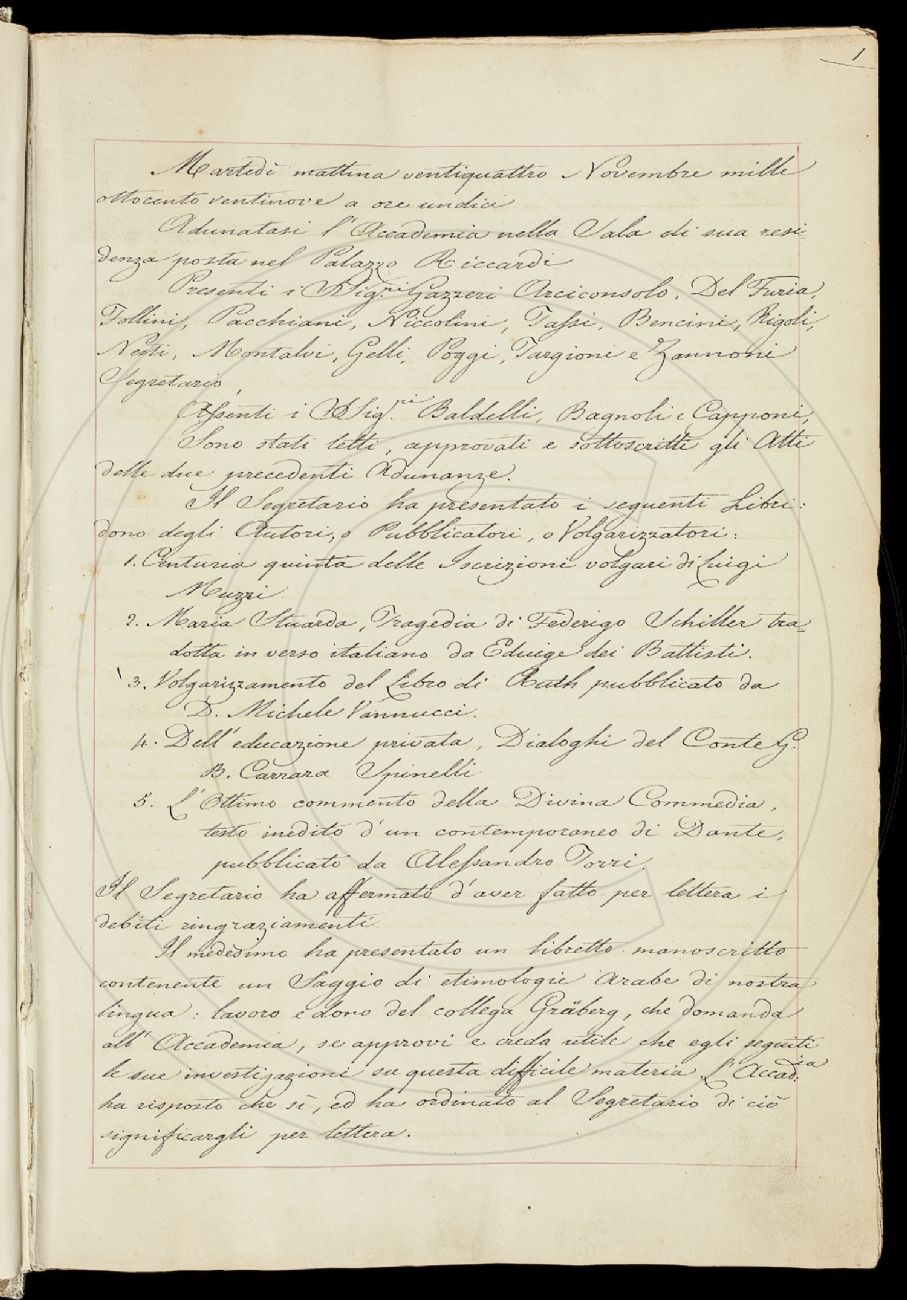 1
Martedì mattina ventiquattro Novembre mille
ottocento ventinove a ore undici
Adunatasi l'Accademia nella Sala di sua resi-
denza posta nel Palazzo Riccardi
Presenti i SSig.ri Gazzeri Arciconsolo, Del Furia,
Follini, Pacchiani, Niccolini, Tassi, Bencini, Rigoli,
Nesti, Montalvi, Gelli, Poggi, Targioni e Zannoni
Segretario,
Assenti i SSig.ri Baldelli, Bagnoli e Capponi,
Sono stati letti, approvati e sottoscritti gli Atti
delle due precedenti Adunanze.
Il Segretario ha presentato i seguenti Libri:
dono degli Autori, o Pubblicatori, o Volgarizzatori:
1. Centuria quinta delle Iscrizioni volgari di Luigi
Muzzi
2. Maria Stuarda, Tragedia di Federigo Schiller tra=
dotta in verso italiano da Edvige dei Battisti.
3. Volgarizzamento del Libro di Ruth pubblicato da
D. Michele Vannucci.
4. Dell'educazione privata, Dialoghi del Conte G.
B. Carrara Spinelli
5. L'Ottimo commento della Divina Commedia,
testo inedito d'un contemporaneo di Dante,
pubblicato da Alessandro Torri.
Il Segretario ha affermato d'aver fatto per lettera i
debiti ringraziamenti
Il medesimo ha presentato un libretto manoscritto
contenente un Saggio di etimologie Arabe di nostra
lingua: lavoro e dono del collega Gräberg, che domanda
all'Accademia, se approvi e creda utile che egli seguiti
le sue investigazioni su questa difficile materia. L'Accad:ia
ha risposto che sì, ed ha ordinato al Segretario di ciò
significargli per lettera.